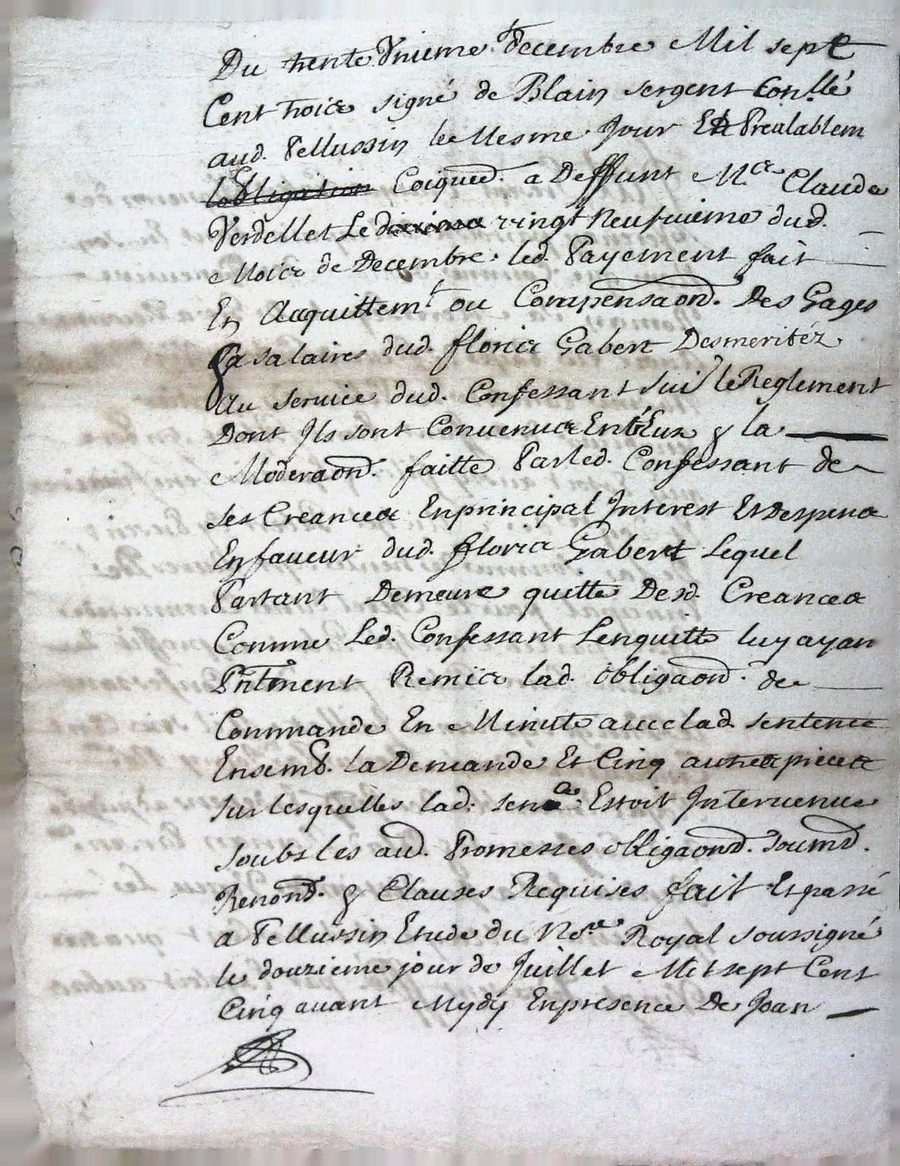 Du trente Unieme decembre Mil sept
Cent trois signé de Blain sergent Con.llé
aud. Pellussin le Mesme Jour Et Prealablem
l'obligation a Deffunt M.re Claude
Verdellet Le vingt Neufvieme dud.
Mois de Decembre. led. Payement fait
En Acquittem.t ou Compensaon. Des Gages
& salaires dud. floris Gabert Desmeritéz
Au service dud. Confessant suiv.t le Reglement
Dont Ils sont Convenus Entr'Eux & la
Moderaon. faitte Par led. Confessant de
ses Creances En principal Interest Et despens
En faveur dud. floris Gabert Lequel
Partant Demeure quitte Desd. Creances
Comme Led. Confessant Lenquitte luy ayan
Pntment Remis lad. obligaon. de
Commande En Minute avec lad. sentence
Ensemb. la Demande Et Cinq autres pieces
sur lesquelles lad. senc.e Estoit Intervenue
soubs les aud. Promesses obligaons. soumo.
Renons. & Clauses Requises fait Et passé
a Pellussin Etude du No.re Royal soussigné
le douzieme jour de Juillet Mil sept Cent
Cinq avant Mydy En presence De Jean